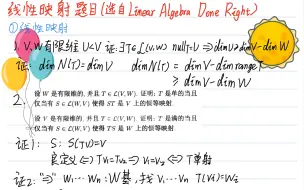 线性映射 题目(选自Linear Algebra Done Right)
①线性映射
1. V, W有限维 U⊂V 证: ∃T∈L(V,W) null T=U ⇔ dim U ≥ dim V - dim W
证: dim N(T) = dim V dim N(T) = dim V - dim range T
≥ dim V - dim W
2.
设 W 是有限维的,并且 T∈L(V,W). 证明: T 是单的当且
仅当有 S∈L(W,V) 使得 ST 是 V 上的恒等映射.
设 W 是有限维的,并且 T∈L(V,W). 证明: T 是满的当且
仅当有 S∈L(W,V) 使得 TS 是 W 上的恒等映射.
证1): S: S(Tv)=v
良定义 ⇔ Tv₁=Tv₂ ⇒ v₁=v₂ ⇔ T单射
证2: "⇒" w₁…wₙ: W基, 找 v₁…vₙ T(vᵢ)=wᵢ